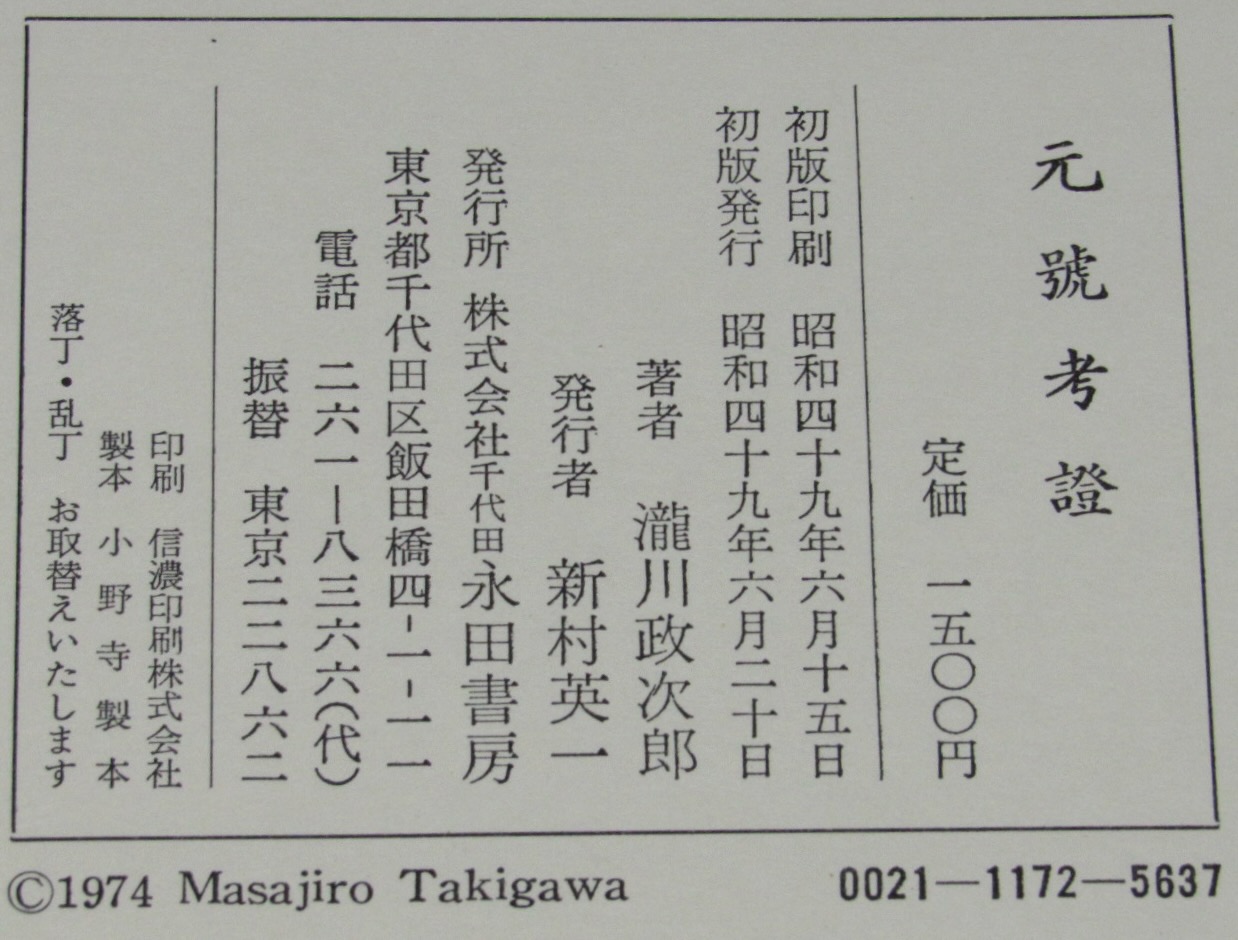 元號考證
定価 一五〇〇円
初版印刷 昭和四十九年六月十五日
初版発行 昭和四十九年六月二十日
著者 瀧川政次郎
発行者 新村英一
発行所 株式会社千代田永田書房
東京都千代田区飯田橋四-一-一一
電話 二六一-八三六六(代)
振替 東京二二八六二
印刷 信濃印刷株式会社
製本 小野寺製本
落丁・乱丁 お取替えいたします
©1974 Masajiro Takigawa
0021—1172—5637